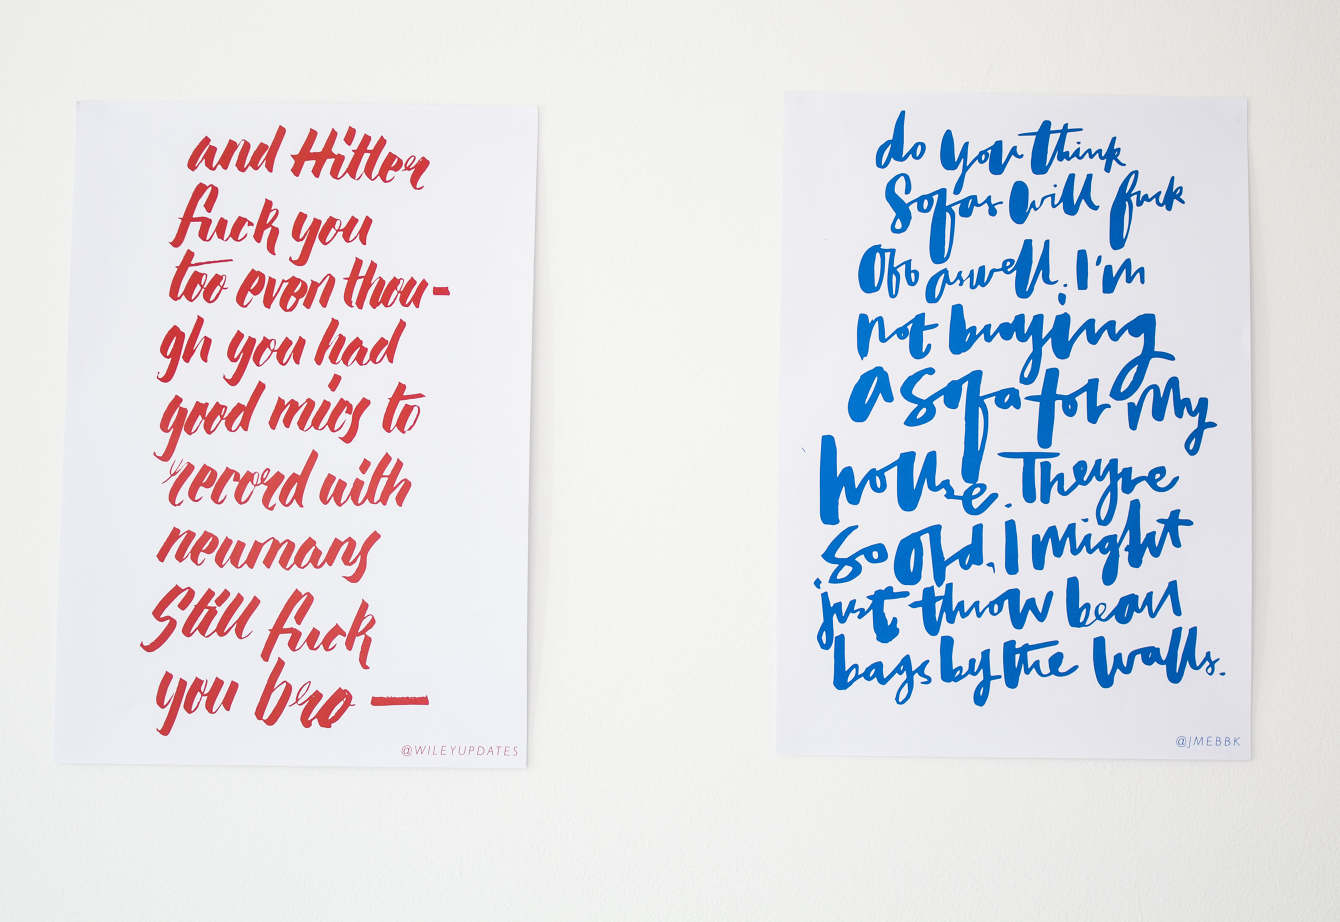 and Hitler
fuck you
too even thou-
gh you had
good mics to
record with
neumans
Still fuck
you bro —
@WILEYUPDATES
do you think
Sofas will fuck
Off aswell. I'm
not buying
a sofa for my
house. They're
so old, I might
just throw bean
bags by the walls.
@JMEBBK